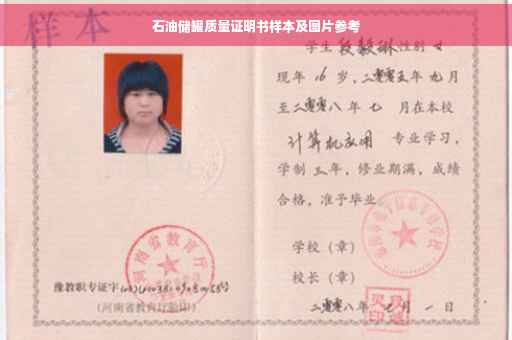 石油储罐质量证明书样本及图片参考
样本
学生段毅琳性别女
现年16岁，二零零五年九月
至二零零八年七 月在本校
计算机应用 专业学习，
学制三年，修业期满，成绩
合格，准予毕业
学校（章）
校长（章）
二零零八年七月一日
河南省教育厅
豫教职专证字
(河南省教育厅验印)